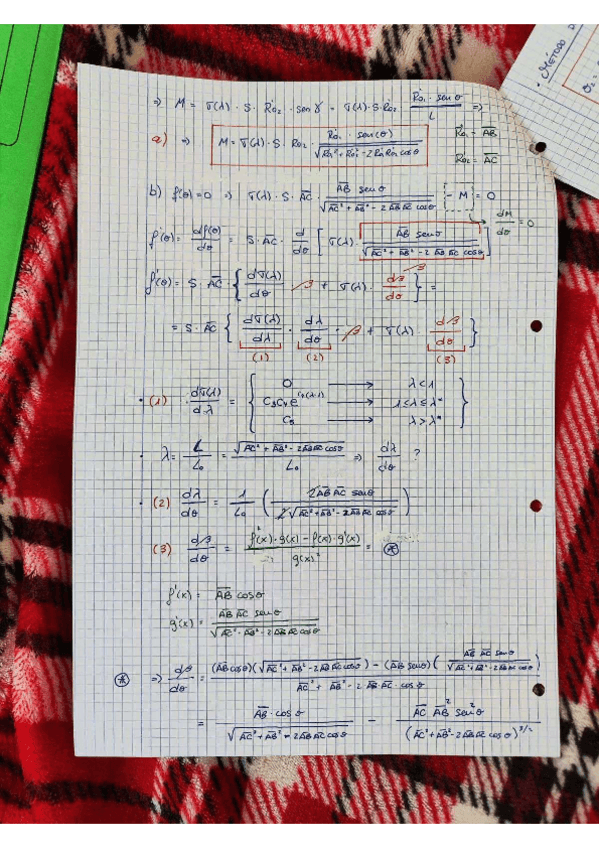 ⇒ M = σ(λ) · S · R̄o₂ · sen γ = σ(λ) · S · R̄o₂ · (R̄o₁ · sen θ) / L ⇒
a) ⇒ M = σ(λ) · S · Ro₂ · (Ro₁ · sen(θ)) / √(Ro₁² + Ro₂² - 2Ro₁Ro₂ cos θ)
Ro₁ = AB̅
Ro₂ = AC̅
b) f(θ) = 0 ⇒ σ(λ) · S · AC̅ · (AB̅ sen θ) / √(AC̅² + AB̅² - 2 AB̅ AC̅ cos θ) - M = 0
dM/dθ = 0
f'(θ) = df(θ)/dθ = S · AC̅ · d/dθ [ σ(λ) · (AB̅ sen θ) / √(AC̅² + AB̅² - 2 AB̅ AC̅ cos θ) ]
β
f'(θ) = S · AC̅ · { dσ(λ)/dθ · β + σ(λ) · dβ/dθ } =
= S · AC̅ { dσ(λ)/dλ · dλ/dθ · β + σ(λ) · dβ/dθ }
(1) (2) (3)
· (1) · dσ(λ)/dλ = { 0 → λ < 1
C₃C₄e^(C₄(λ-1)) → 1 ≤ λ ≤ λ*
C₅ → λ > λ* }
· λ = L/L₀ = √(AC̅² + AB̅² - 2AB̅ AC̅ cos θ) / L₀ ⇒ dλ/dθ ?
· (2) dλ/dθ = 1/L₀ ( 2AB̅ AC̅ sen θ / 2√(AC̅² + AB̅² - 2AB̅ AC̅ cos θ) )
(3) dβ/dθ = (f'(x) · g(x) - f(x) · g'(x)) / g(x)² = ⊛
f'(x) = AB̅ cos θ
g'(x) = AB̅ AC̅ sen θ / √(AC̅² + AB̅² - 2AB̅ AC̅ cos θ)
⊛ ⇒ dβ/dθ = ((AB̅ cos θ)(√(AC̅² + AB̅² - 2AB̅ AC̅ cos θ)) - (AB̅ sen θ)(AB̅ AC̅ sen θ / √(AC̅² + AB̅² - 2AB̅ AC̅ cos θ))) / (AC̅² + AB̅² - 2 AB̅ AC̅ · cos θ)
= AB̅ · cos θ / √(AC̅² + AB̅² - 2AB̅ AC̅ cos θ) - AC̅ AB̅² sen² θ / (AC̅² + AB̅² - 2AB̅ AC̅ cos θ)^(3/2)
· MÉTODO